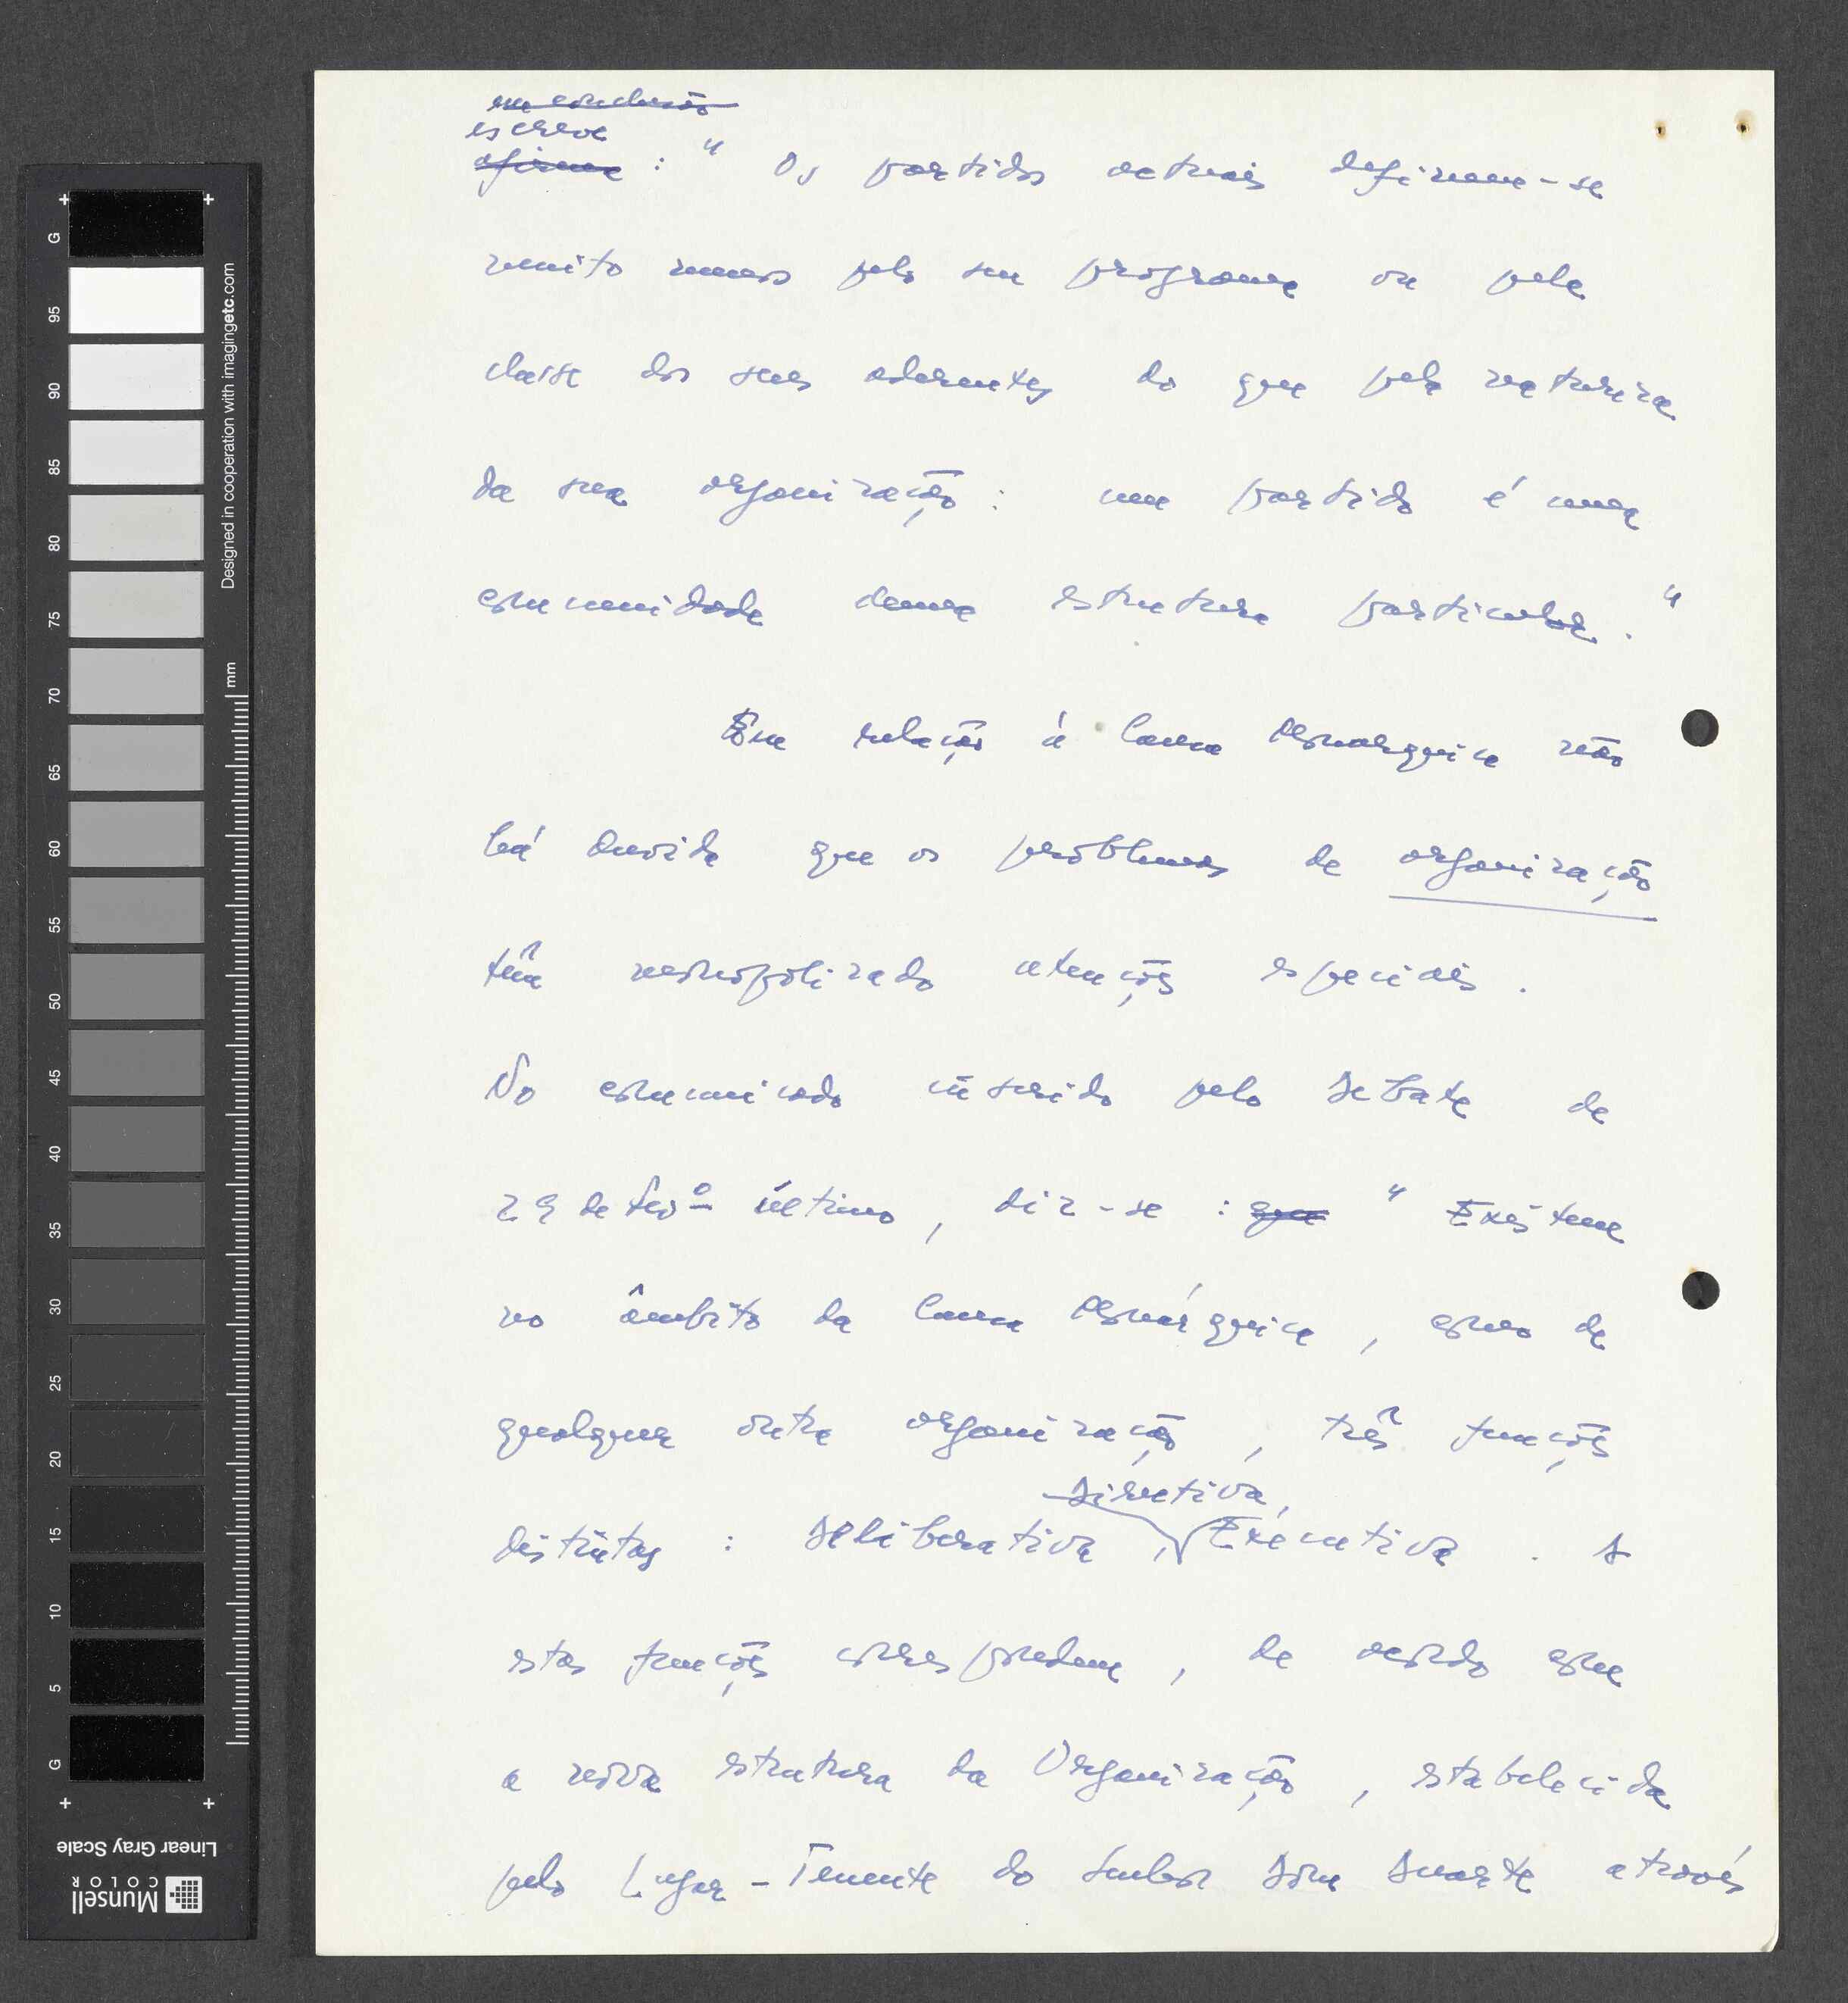 em conclusão
escreve
afirma : " Os partidos actuais definem-se
muito menos pelo seu programa ou pela
classe dos seus aderentes do que pela natureza
da sua organização : um partido é uma
comunidade duma estrutura particular . "
Em relação à Causa Monarquica não
há duvida que os problemas de organização
têm monopolizado atenções especiais .
No comunicado inserido pelo Debate de
29 de Fevº último , diz-se : que " Existem
no âmbito da Causa Monárquica , como de
qualquer outra organização , três funções
Directiva,
distintas : Deliberativa , Executiva . A
estas funções correspondem , de acordo com
a nova estrutura da Organização , estabelecida
pelo Lugar-Tenente do Senhor Dom Duarte através
G
95
90
85
80
75
70
65
60
55
50
45
40
35
30
25
20
15
10
5
G
mm
Designed in cooperation with imagingetc.com
Linear Gray Scale
Munsell
COLOR